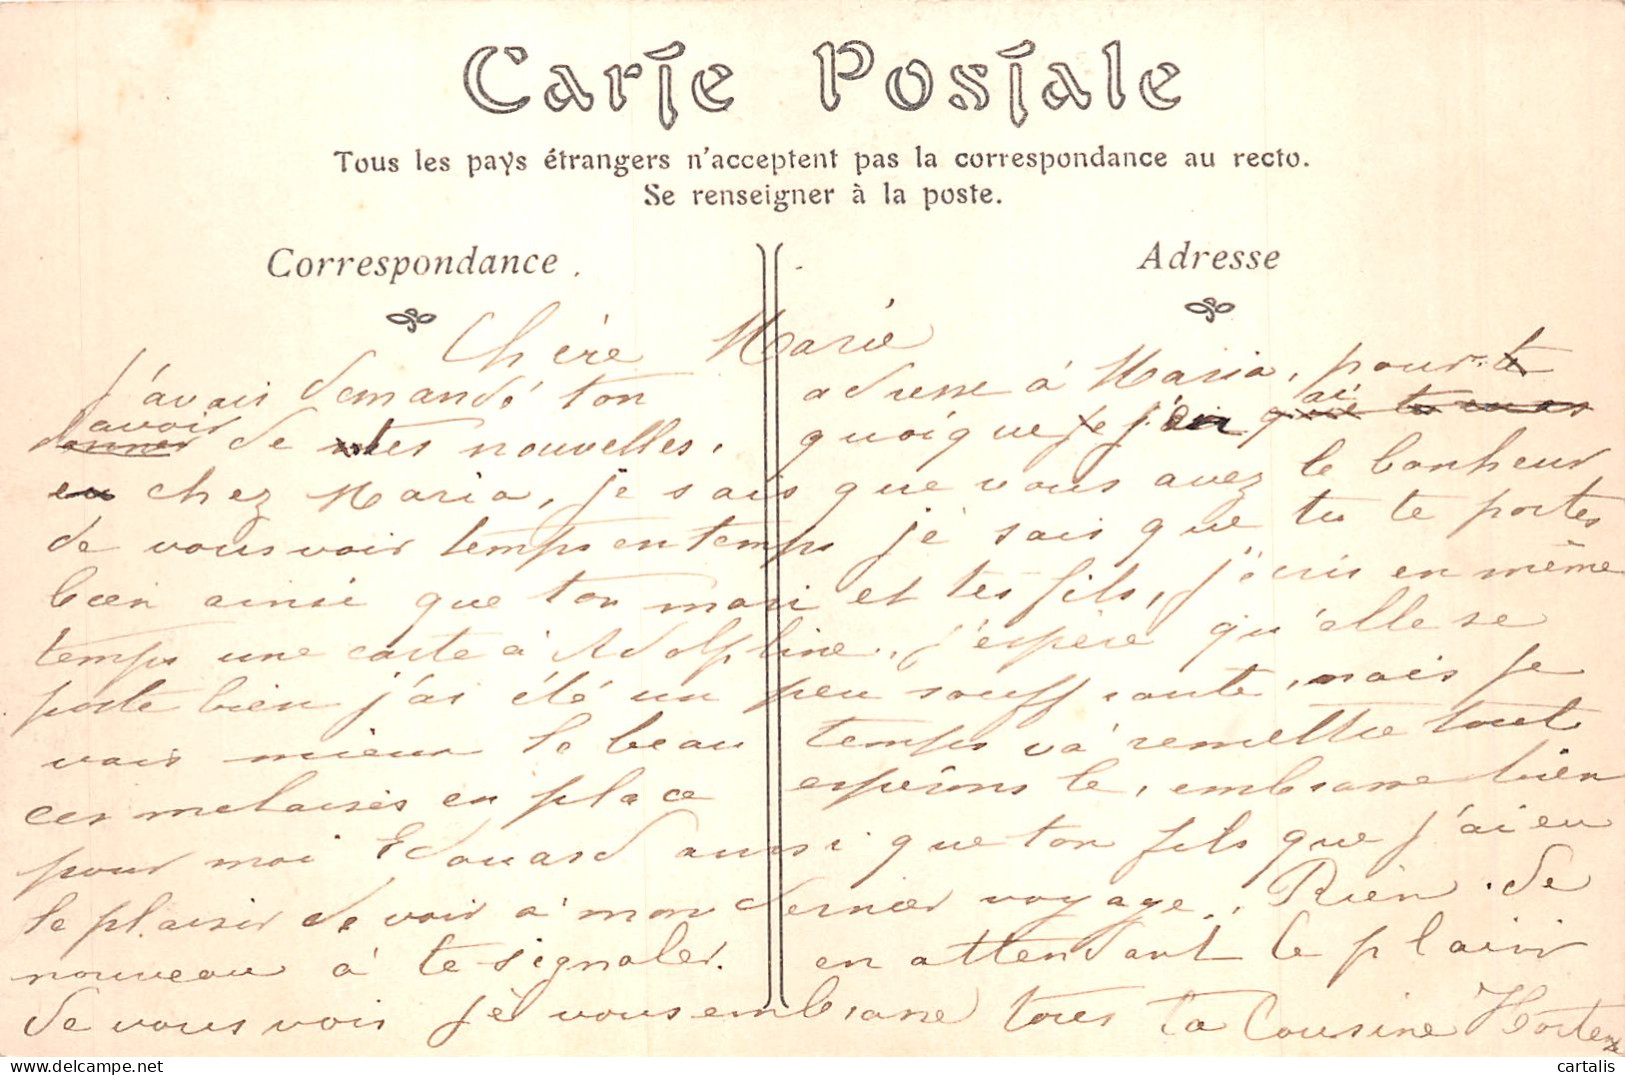 Carte Postale
Tous les pays étrangers n'acceptent pas la correspondance au recto.
Se renseigner à la poste.
Correspondance
Adresse
Chère Marie
J'avais demandé ton adresse à Maria, pour
avoir
donner de tes nouvelles, quoique j'en ai
en chez Maria, je sais que vous avez le bonheur
de vous voir temps en temps je sais que tu te portes
bien ainsi que ton mari et tes fils, j'écris en même
temps une carte à Adolphine, j'espère qu'elle se
porte bien j'ai été un peu souffrante, mais je
vais mieux le beau temps va remettre tout
ces malaises en place espérons le, embrasse bien
pour moi Edouard aussi que ton fils que j'ai eu
le plaisir de voir à mon dernier voyage. Rien de
nouveau à te signaler. en attendant le plaisir
de vous voir je vous embrasse tous ta Cousine Hortense
cartalis